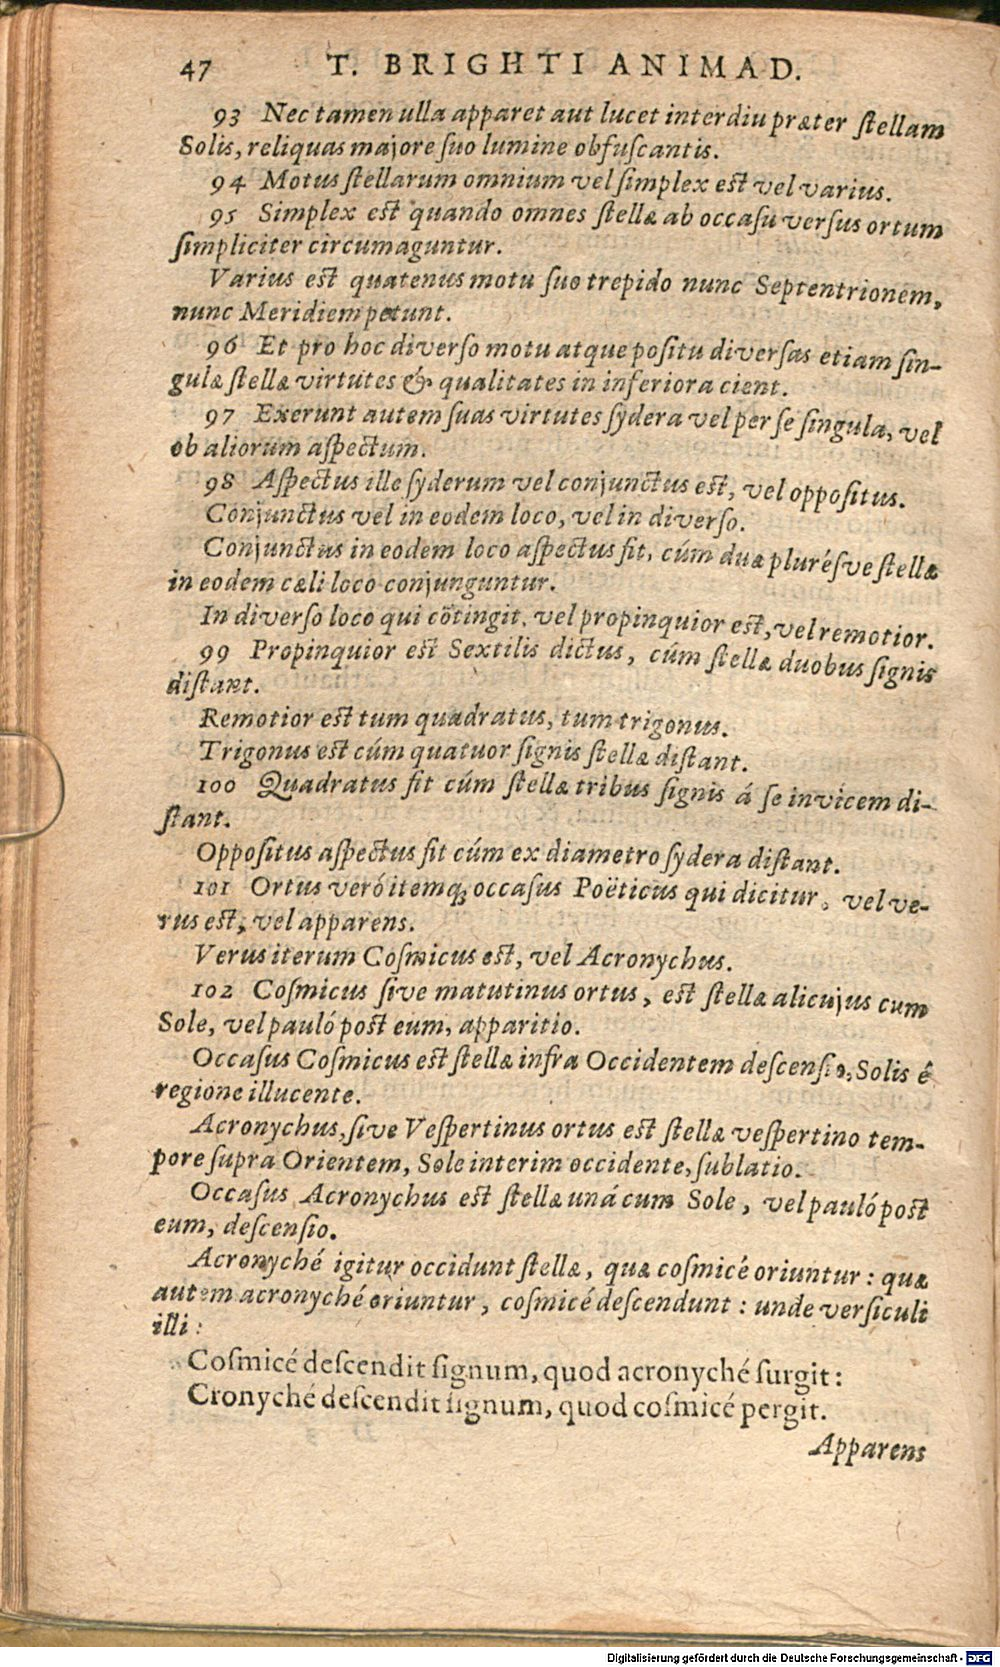 47 T. BRIGHTI ANIMAD.
93 Nec tamen ulla apparet aut lucet interdiu præter ſtellam
Solis, reliquas majore ſuo lumine obfuſcantis.
94 Motus ſtellarum omnium vel ſimplex eſt vel varius.
95 Simplex eſt quando omnes ſtellæ ab occaſu verſus ortum
ſimpliciter circumaguntur.
Varius eſt quatenus motu ſuo trepido nunc Septentrionem,
nunc Meridiem petunt.
96 Et pro hoc diverſo motu atque poſitu diverſas etiam ſin-
gulæ ſtellæ virtutes & qualitates in inferiora cient.
97 Exerunt autem ſuas virtutes ſydera vel per ſe ſingula, vel
ob aliorum aſpectum.
98 Aſpectus ille ſyderum vel conjunctus eſt, vel oppoſitus.
Conjunctus vel in eodem loco, vel in diverſo.
Conjunctus in eodem loco aſpectus fit, cúm duæ plurésve ſtellæ
in eodem cæli loco conjunguntur.
In diverſo loco qui cõtingit, vel propinquior eſt, vel remotior.
99 Propinquior eſt Sextilis dictus, cúm ſtellæ duobus ſignis
diſtant.
Remotior eſt tum quadratus, tum trigonus.
Trigonus eſt cúm quatuor ſignis ſtellæ diſtant.
100 Quadratus fit cúm ſtellæ tribus ſignis á ſe invicem di-
ſtant.
Oppoſitus aſpectus fit cúm ex diametro ſydera diſtant.
101 Ortus veró itemq; occaſus Poëticus qui dicitur, vel ve-
rus eſt, vel apparens.
Verus iterum Coſmicus eſt, vel Acronychus.
102 Coſmicus ſive matutinus ortus, eſt ſtellæ alicujus cum
Sole, vel pauló poſt eum, apparitio.
Occaſus Coſmicus eſt ſtellæ infra Occidentem deſcenſio, Solis é
regione illucente.
Acronychus, ſive Veſpertinus ortus eſt ſtellæ veſpertino tem-
pore ſupra Orientem, Sole interim occidente, ſublatio.
Occaſus Acronychus eſt ſtellæ uná cum Sole, vel pauló poſt
eum, deſcenſio.
Acronyché igitur occidunt ſtellæ, quæ coſmicé oriuntur: quæ
autem acronyché oriuntur, coſmicé deſcendunt: unde verſiculi
illi:
Coſmicé deſcendit ſignum, quod acronyché ſurgit:
Cronyché deſcendit ſignum, quod coſmicé pergit.
Apparens
Digitalisierung gefördert durch die Deutsche Forschungsgemeinschaft - DFG